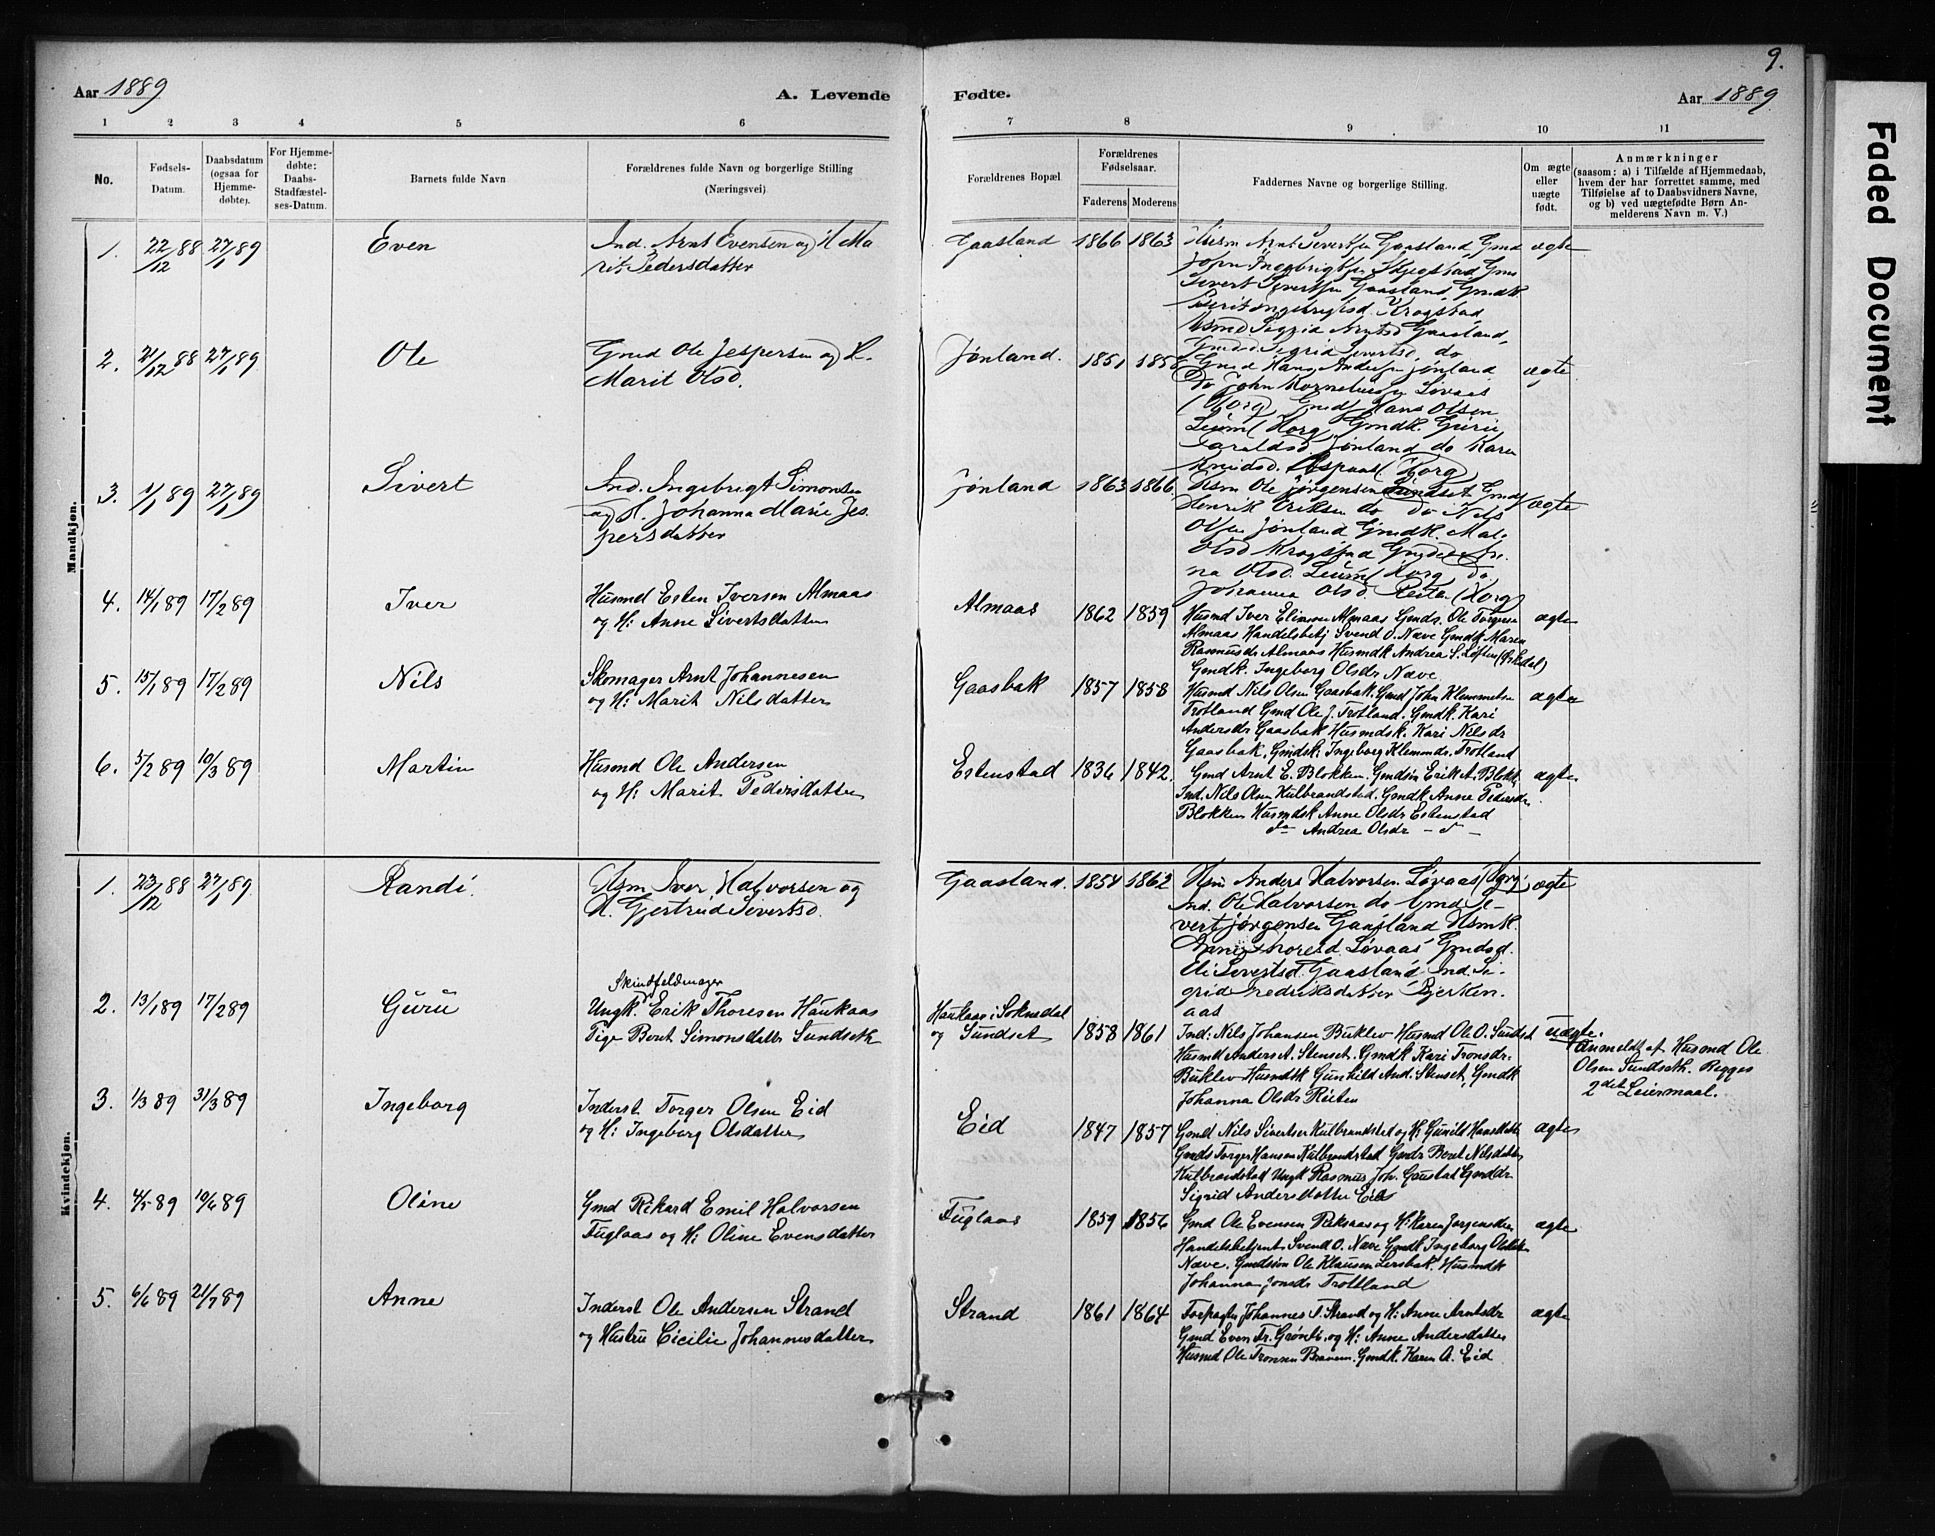 9.
Aar 1889 A. Levende Fødte. Aar 1889
1 2 3 4 5 6 7 8 9 10 11
No.
Fødsels-
Datum.
Daabsdatum
(ogsaa for
Hjemme-
døbte).
For Hjemme-
døbte:
Daabs-
Stadfæstel-
ses-Datum.
Barnets fulde Navn
Forældrenes fulde Navn og borgerlige Stilling
(Næringsvei)
Forældrenes Bopæl.
Forældrenes
Fødselsaar.
Faderens Moderens
Faddernes Navne og borgerlige Stilling.
Om ægte
eller
uægte
født.
Anmærkninger
(saasom: a) i Tilfælde af Hjemmedaab,
hvem der har forrettet samme, med
Tilføielse af to Daabsvidners Navne,
og b) ved uægtefødte Børn An-
melderens Navn m. V.)
Mandkjøn.
1. 22/12 88 27/1 89 Even
Ind. Arnt Evensen og H. Ma
rit Pedersdatter
Gaasland 1866 1863
Husm Arnt Sivertsen Gaasland, Gmd
John Ingebrigtsen Gm
Sivert Sivertsen Gaasland Gmdk
Ingebrigtsd. Krogstad
Sigrid Arntsd Gaasland,
Sigrid Sivertsd. do
ægte
2. 21/12 88 27/1 89 Ole
Gmd Ole Jespersen og H.
Marit Olsd.
Jønland. 1851 1858
Gmd Hans Andersen Jønland
Do John Korneliusen Løvaas
(Horg) Gmd Hans Olsen
Horg, Gmdk. Guru
Jønland do Karen
Knudsd. (Horg)
ægte
3. 1/1 89 27/1 89 Sivert
Ind. Ingebrigt Simonsen
og H. Johanna Marie Jes-
persdatter
Jønland 1863 1866
Hsm Ole Jørgensen Sundset Gmd
Henrik Eriksen do do Nils
Olsen Jønland Gmdk. Mal.
Olsd Krogstad
na Olsd. (Horg do
Johanna Olsd (Horg)
ægte
4. 14/1 89 17/2 89 Iver
Husmd Esten Iversen Almaas
og H: Anne Sivertsdatter
Almaas 1862 1859
Husmd Iver Almaas Gmds. Ole
Almaas Handelsbetj Svend O. Næve Gmdk Maren
Rasmusdr Almaas Husmdk Andrea S. Løften (Ørkdal)
Gmdk. Ingeborg Olsdr Næve
ægte
5. 15/1 89 17/2 89 Nils
Skomager Arnt Johannesen
og H: Marit Nilsdatter
Gaasbak 1857 1858
Husmd Nils Olsen Gaasbak. Gmd John Klemmetsen
Trotland Gmd Ole J. Trotland. Gmdk. Kari
Andersdr Gaasbak Husmdsk. Kari Nilsdr
Gaasbak. Gmdsk: Ingeborg Klemmdr. Trotland
ægte
6. 5/2 89 10/3 89 Martin
Husmd Ole Andersen
og H: Marit Pedersdatter
Estenstad 1836 1842.
Gmd Arnt E. Blokken. Gmdsøn Erik A. Blokk.
Ind. Nils Olsen Kulbrandstad. Gmdk Anne Pedersdr
Blokken Husmdsk Anne Olsdr Estenstad
do Andrea Olsdr - d -
ægte.
Kvindekjøn.
1. 23/12 88 27/1 89. Randi.
Hsm Iver Halvorsen og
H. Gjertrud Sivertsd.
Gaasland. 1854 1862
Hsm Anders Halvorsen Løvaas (Horg)
Ind. Ole Halvorsen do Gmd Si-
vert Jørgensen Gaasland Hsmk.
Løvaas Gmdsd.
Eli Sivertsd. Gaasland Ind. Si-
grid Bjerken-
aas
ægte
2. 13/1 89 17/2 89 Guru
Skindfeldmager
Ungk. Erik Thoresen Haukaas
Pige Beret Simonsdatter Sundseth
Haukaas i Soknedal
og Sundset 1858 1861
Ind: Nils Johansen Buklev Husmd Ole O. Sundset
Husmd Anders A. Stenset. Gmdk Kari Tronsdr.
Buklev Husmdsk Gunhild And. Stenset, Gmdk
Johanna Olsdr
uægte.
Anmeldt af Husmd Ole
Olsen Sundseth. Begges
2det Leiermaal.
3. 1/3 89 31/3 89 Ingeborg
Inderst Torger Olsen Eid
og H: Ingeborg Olsdatter
Eid 1847 1857
Gmd Nils Sivertsen Kulbrandstad og H: Gunild Hansdatter
Gmds Torger Hansen Kulbrandstad Gmdr Beret Nilsdatter
Kulbrandstad Ungk Rasmus Joh. Gaustad Gmddr
Sigrid Andersdatter Eid
ægte
4. 4/5 89 10/6 89 Oline
Gmd Rikard Emil Halvorsen
Fuglaas og H: Oline Evensdatter
Fuglaas 1859 1856
Gmd Ole Evensen og H: Karen Jørgensdr
Handelsbetjent Svend O. Næve Gmdk Ingeborg Olsdr
Næve. Gmdsøn Ole Klausen Lersbak. Husmdk
Johanna Jonsdr Trotland
ægte
5. 6/6 89 21/7 89 Anne
Inderst Ole Andersen Strand
og Hustru Cicilie Johannesdatter
Strand 1861 1864
Forpagter Johannes T. Strand og H: Anne Arntsdr
Gmd Even Fr. Grønli. og H: Anne Andersdatter
Husmd Ole Tronsen Gmdk. Karen A. Eid
ægte
Faded Document